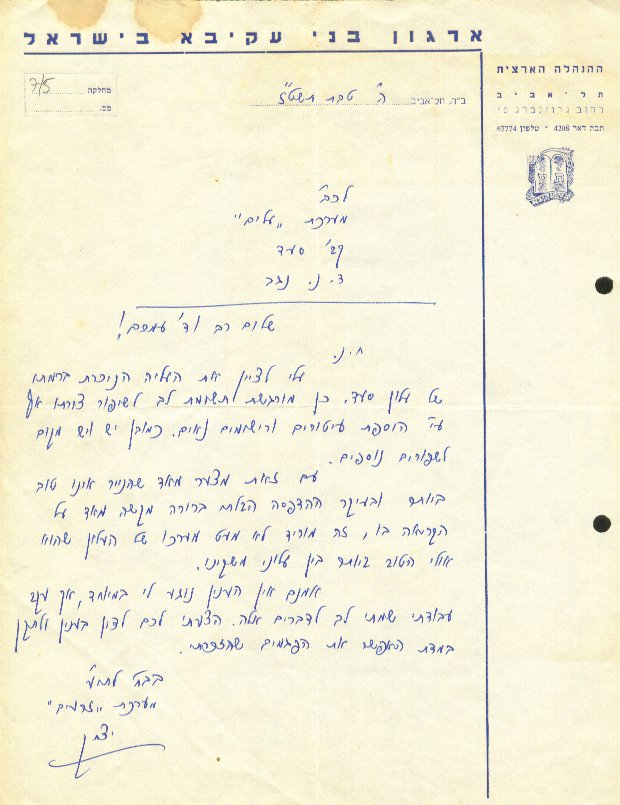 ארגון בני עקיבא בישראל
ההנהלה הארצית
תל־אביב
רחוב גרוזנברג
תבת דאר 4208 * טלפון 67774
מחלקה 7/5
מס.
ב"ה, תל־אביב ה' טבת תשט"ז
לכב'
מערכת "עלים"
קב' סעד
ד. נ. נגב
שלום רב וד' עמכם!
ח. נ.
עלי לציין את העליה הניכרת ברמתו
של עלון סעד. כן מורגשת תשומת לב לשיפור צורתו אף
ע"י הוספת עיטורים ורישומים נאים. כמובן יש ויש מקום
לשפורים נוספים.
עם זאת מצער מאד שהנייר אינו טוב
ביותר ובעיקר ההדפסה הבלתי ברורה מקשה מאד על
הקריאה בו, זה מוריד לא מעט מערכו של העלון שהוא
אולי הטוב ביותר בין עלוני משקינו.
אמנם אין הענין נוגע לי במיוחד, אך עקב
עבודתי שמתי לב לדברים אלה. הצעתי לכם לדון בענין ולתקן
במדת האפשר את הפגמים שהזכרתי.
בברכת לתוע"
מערכת "זרעים"
יצחק